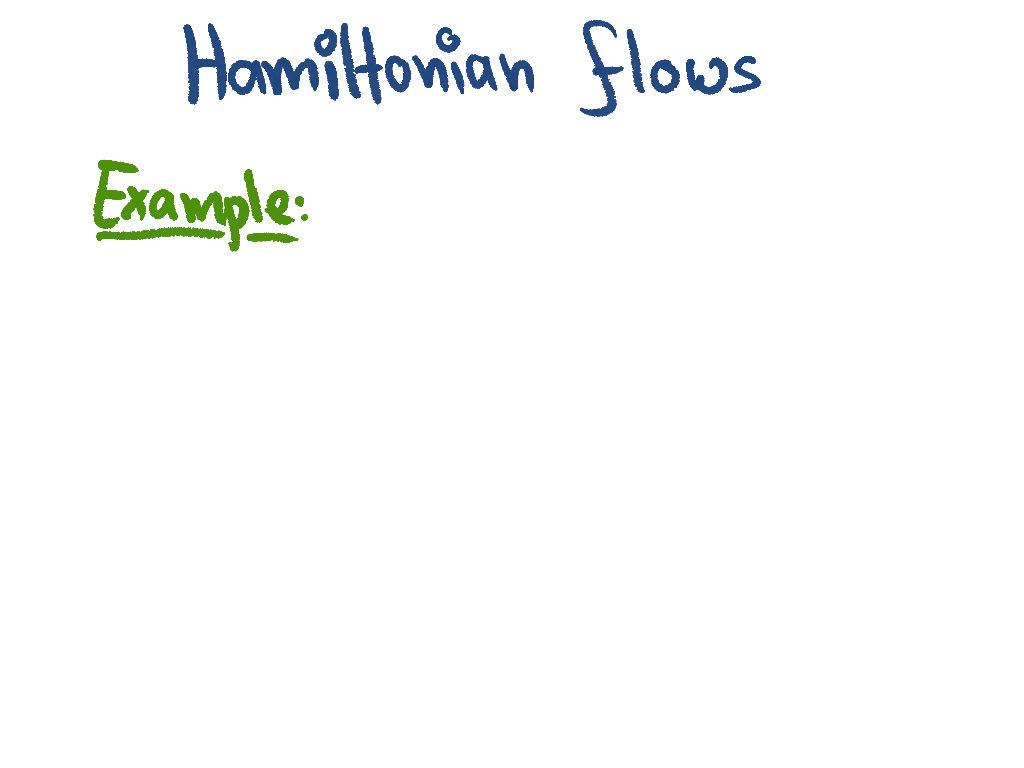 Hamiltonian flows
Example: